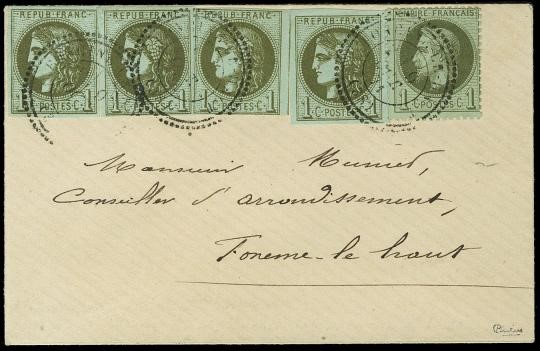 REPUB·FRANC· REPUB·FRANC· REPUB·FRANC· REPUB·FRANC· EMPIRE FRANÇAIS
1 C·POSTES·C·1 1 C·POSTES·C·1 1 C·POSTES·C·1 1 C·POSTES·C·1 1 C·POSTES·C·1
Monsieur
Conseiller d'arrondissement,
le haut